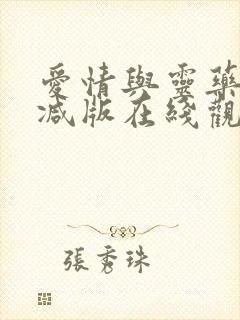 愛情與靈藥
减版在綫觀
張秀珠